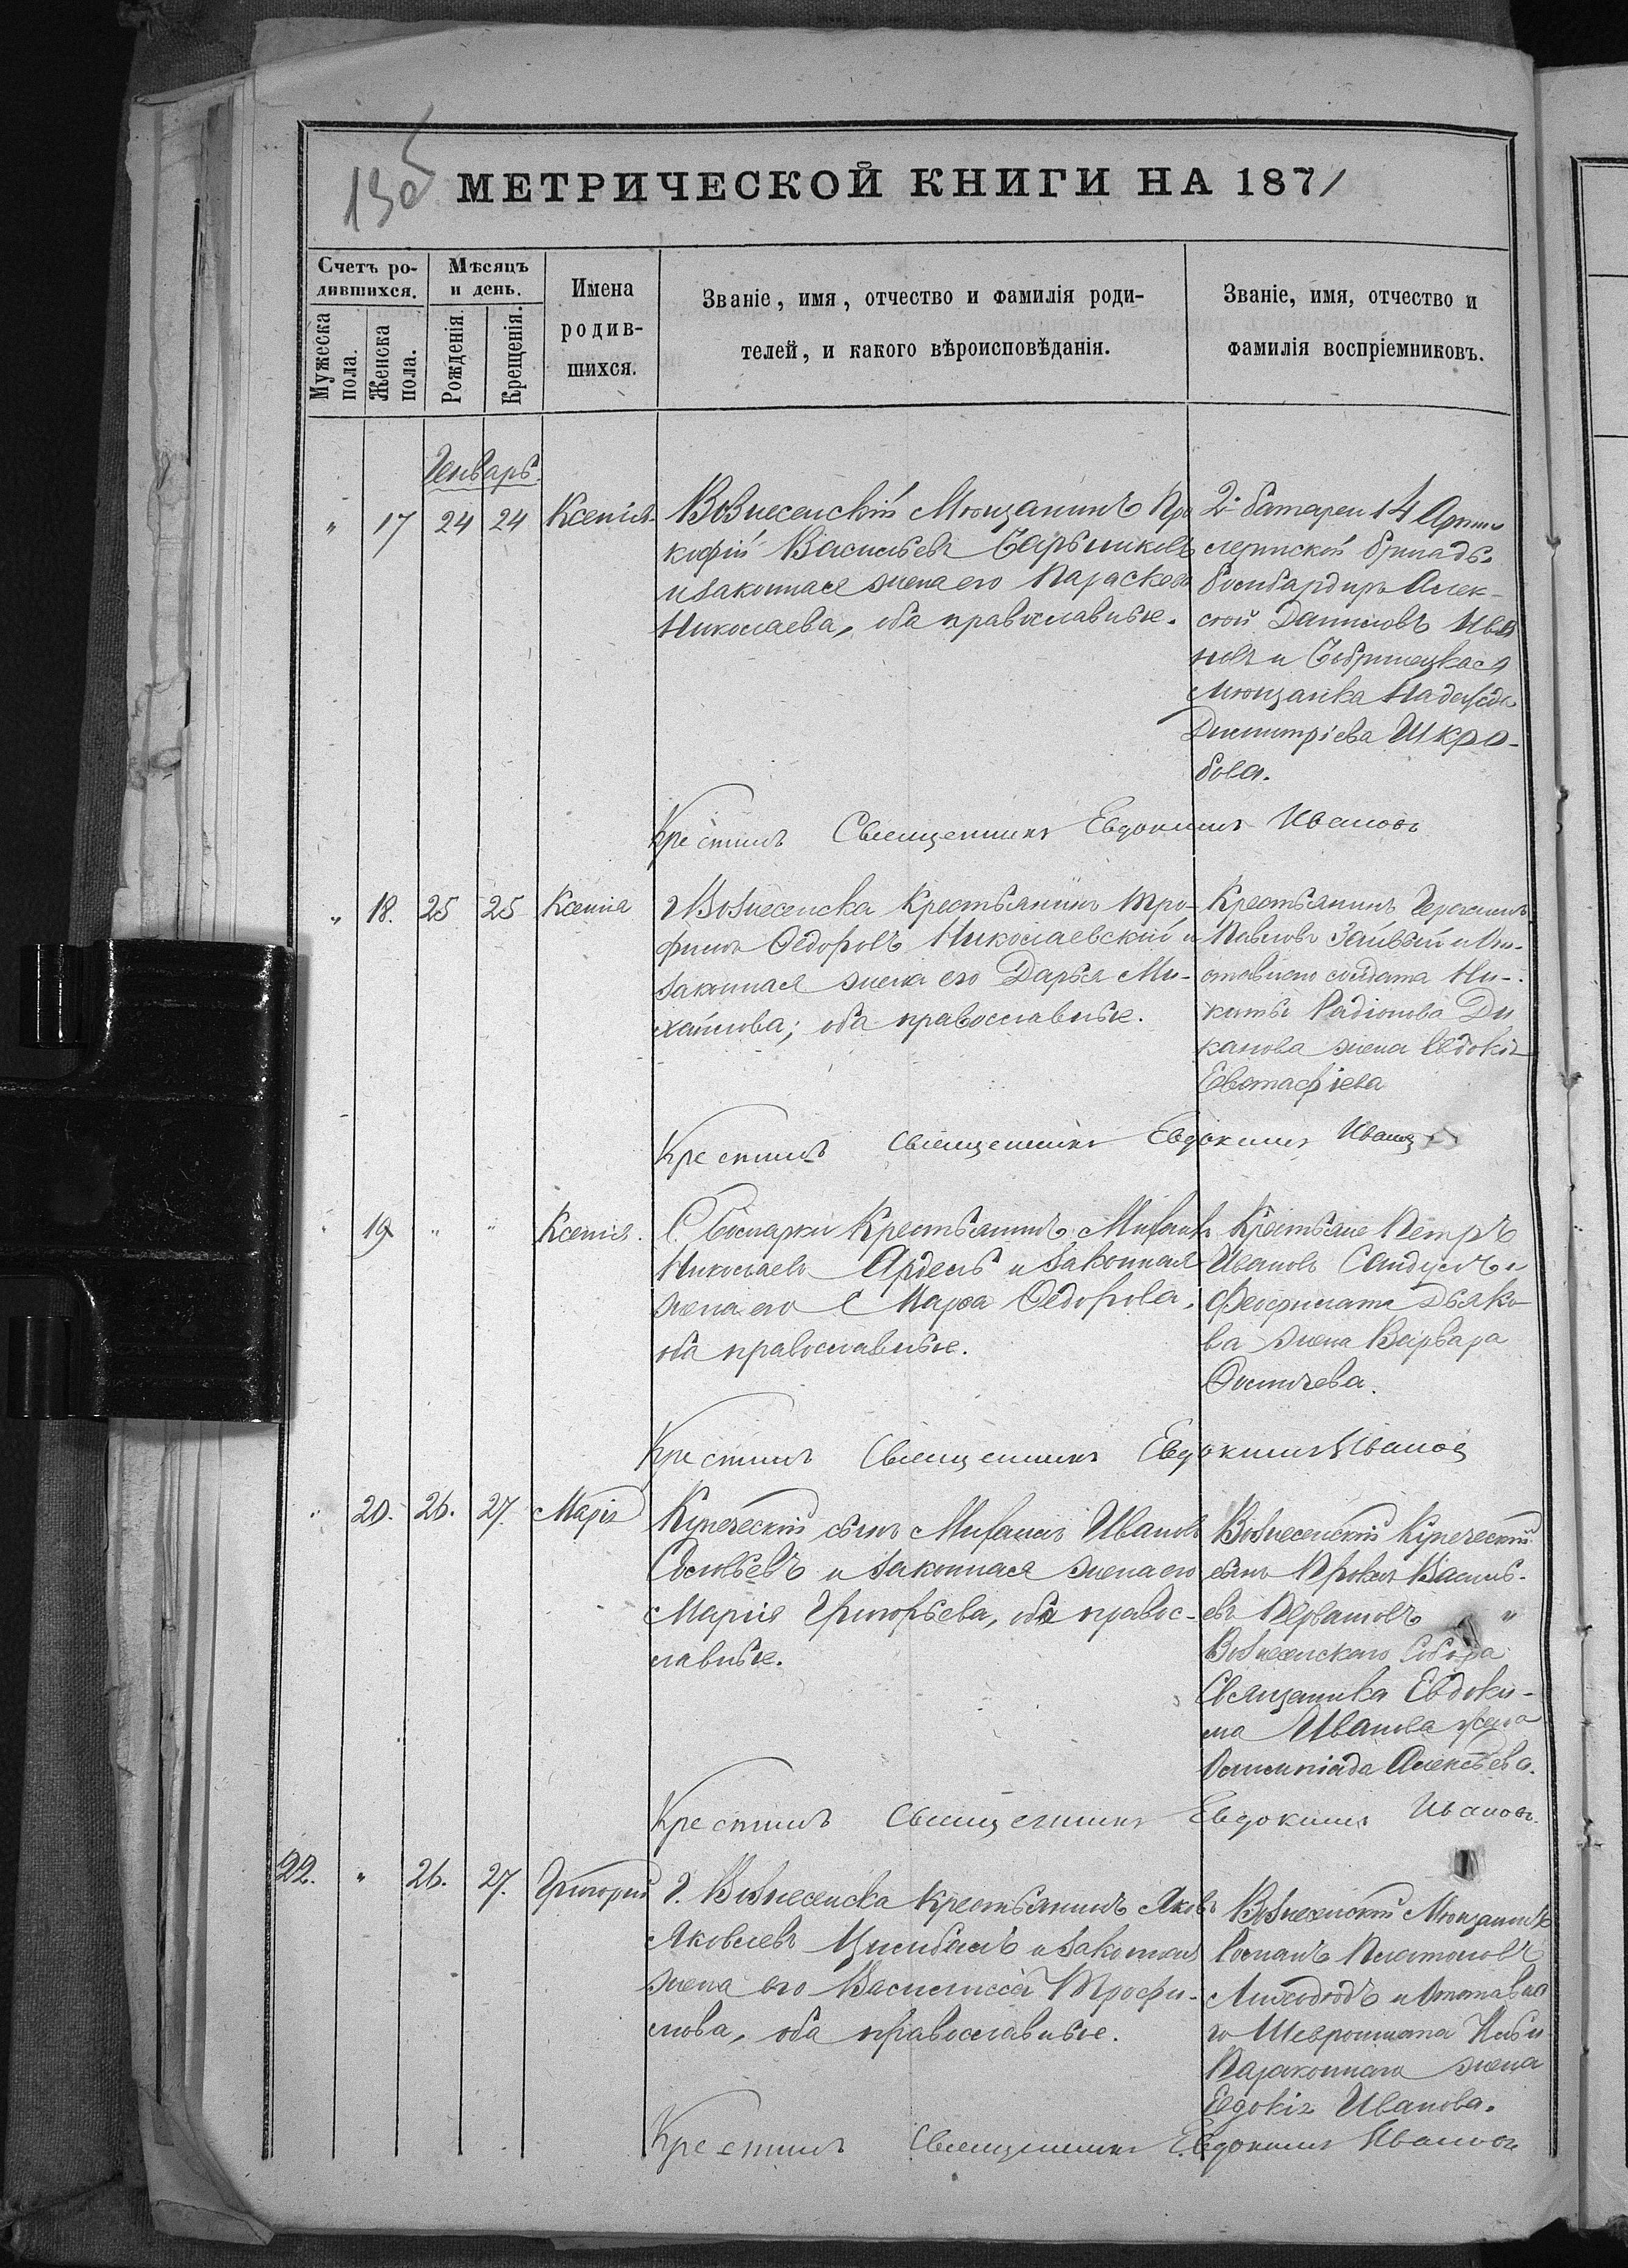 13об
МЕТРИЧЕСКОЙ КНИГИ НА 1871
Счетъ ро-
дившихся.
Мужеска
пола.
Женска
пола.
Мѣсяцъ
и день.
Рожденія.
Крещенія.
Имена
родив-
шихся.
Званіе, имя, отчество и фамилія роди-
телей, и какого вѣроисповѣданія.
Званіе, имя, отчество и
фамилія воспріемниковъ.
Генварь.
" 17 24 24 Ксенія
Вознесенскій Мѣщанинъ Про
кофій Васильевъ
и законная жена его Параскева
Николаева, оба православные.
2й батареи 14 Артил
лерійской бригады
бомбардиръ Алек-
сѣй Даниловъ Ива
новъ и Бобринецкая
Мѣщанка Надежда
Димитріева Шкро-
бова.
Крестилъ Священникъ Евдокимъ Ивановъ
" 18. 25 25 Ксенія
г Вознесенска Крестьянинъ Тро-
фимъ Ѳедоровъ Николаевскій и
законная жена его Дарья Ми-
хайлова; оба православные.
Крестьянинъ Герасимъ
Павловъ и От-
ставнаго солдата Ни-
киты Радіонова Ди
канова жена Евдокія
Евстафіева
Крестилъ Священникъ Евдокимъ Ивановъ
" 19 " " Ксенія.
С. Крестьянинъ Михаилъ
Николаевъ и законная
жена его Марѳа Ѳедорова,
оба православные.
Крестьяне Петръ
Ивановъ и
Феофилата Дьяко-
ва жена Варвара
Ѳомичева.
Крестилъ Священникъ Евдокимъ Ивановъ
" 20. 26. 27. Марія
Купеческій сынъ Михаилъ Ивановъ
Соловьевъ и законная жена его
Марія Григорьева, оба правос-
лавные.
Вознесенскій Купеческій
сынъ Прокопій Василь-
евъ "
Вознесенскаго Собора
Священника Евдоки-
ма Иванова жена
Олимпіада Алексѣева.
Крестилъ Священникъ Евдокимъ Ивановъ.
22. " 26. 27. Григорій
г. Вознесенска Крестьянинъ Яковъ
Яковлевъ Цимбалъ и законная
жена его Василисса Трофи-
мова, оба православные.
Вознесенскій Мѣщанинъ
Романъ Платоновъ
Лиходѣдъ и Отставна
го Ильи
жена
Евдокія Иванова.
Крестилъ Священникъ Евдокимъ Ивановъ